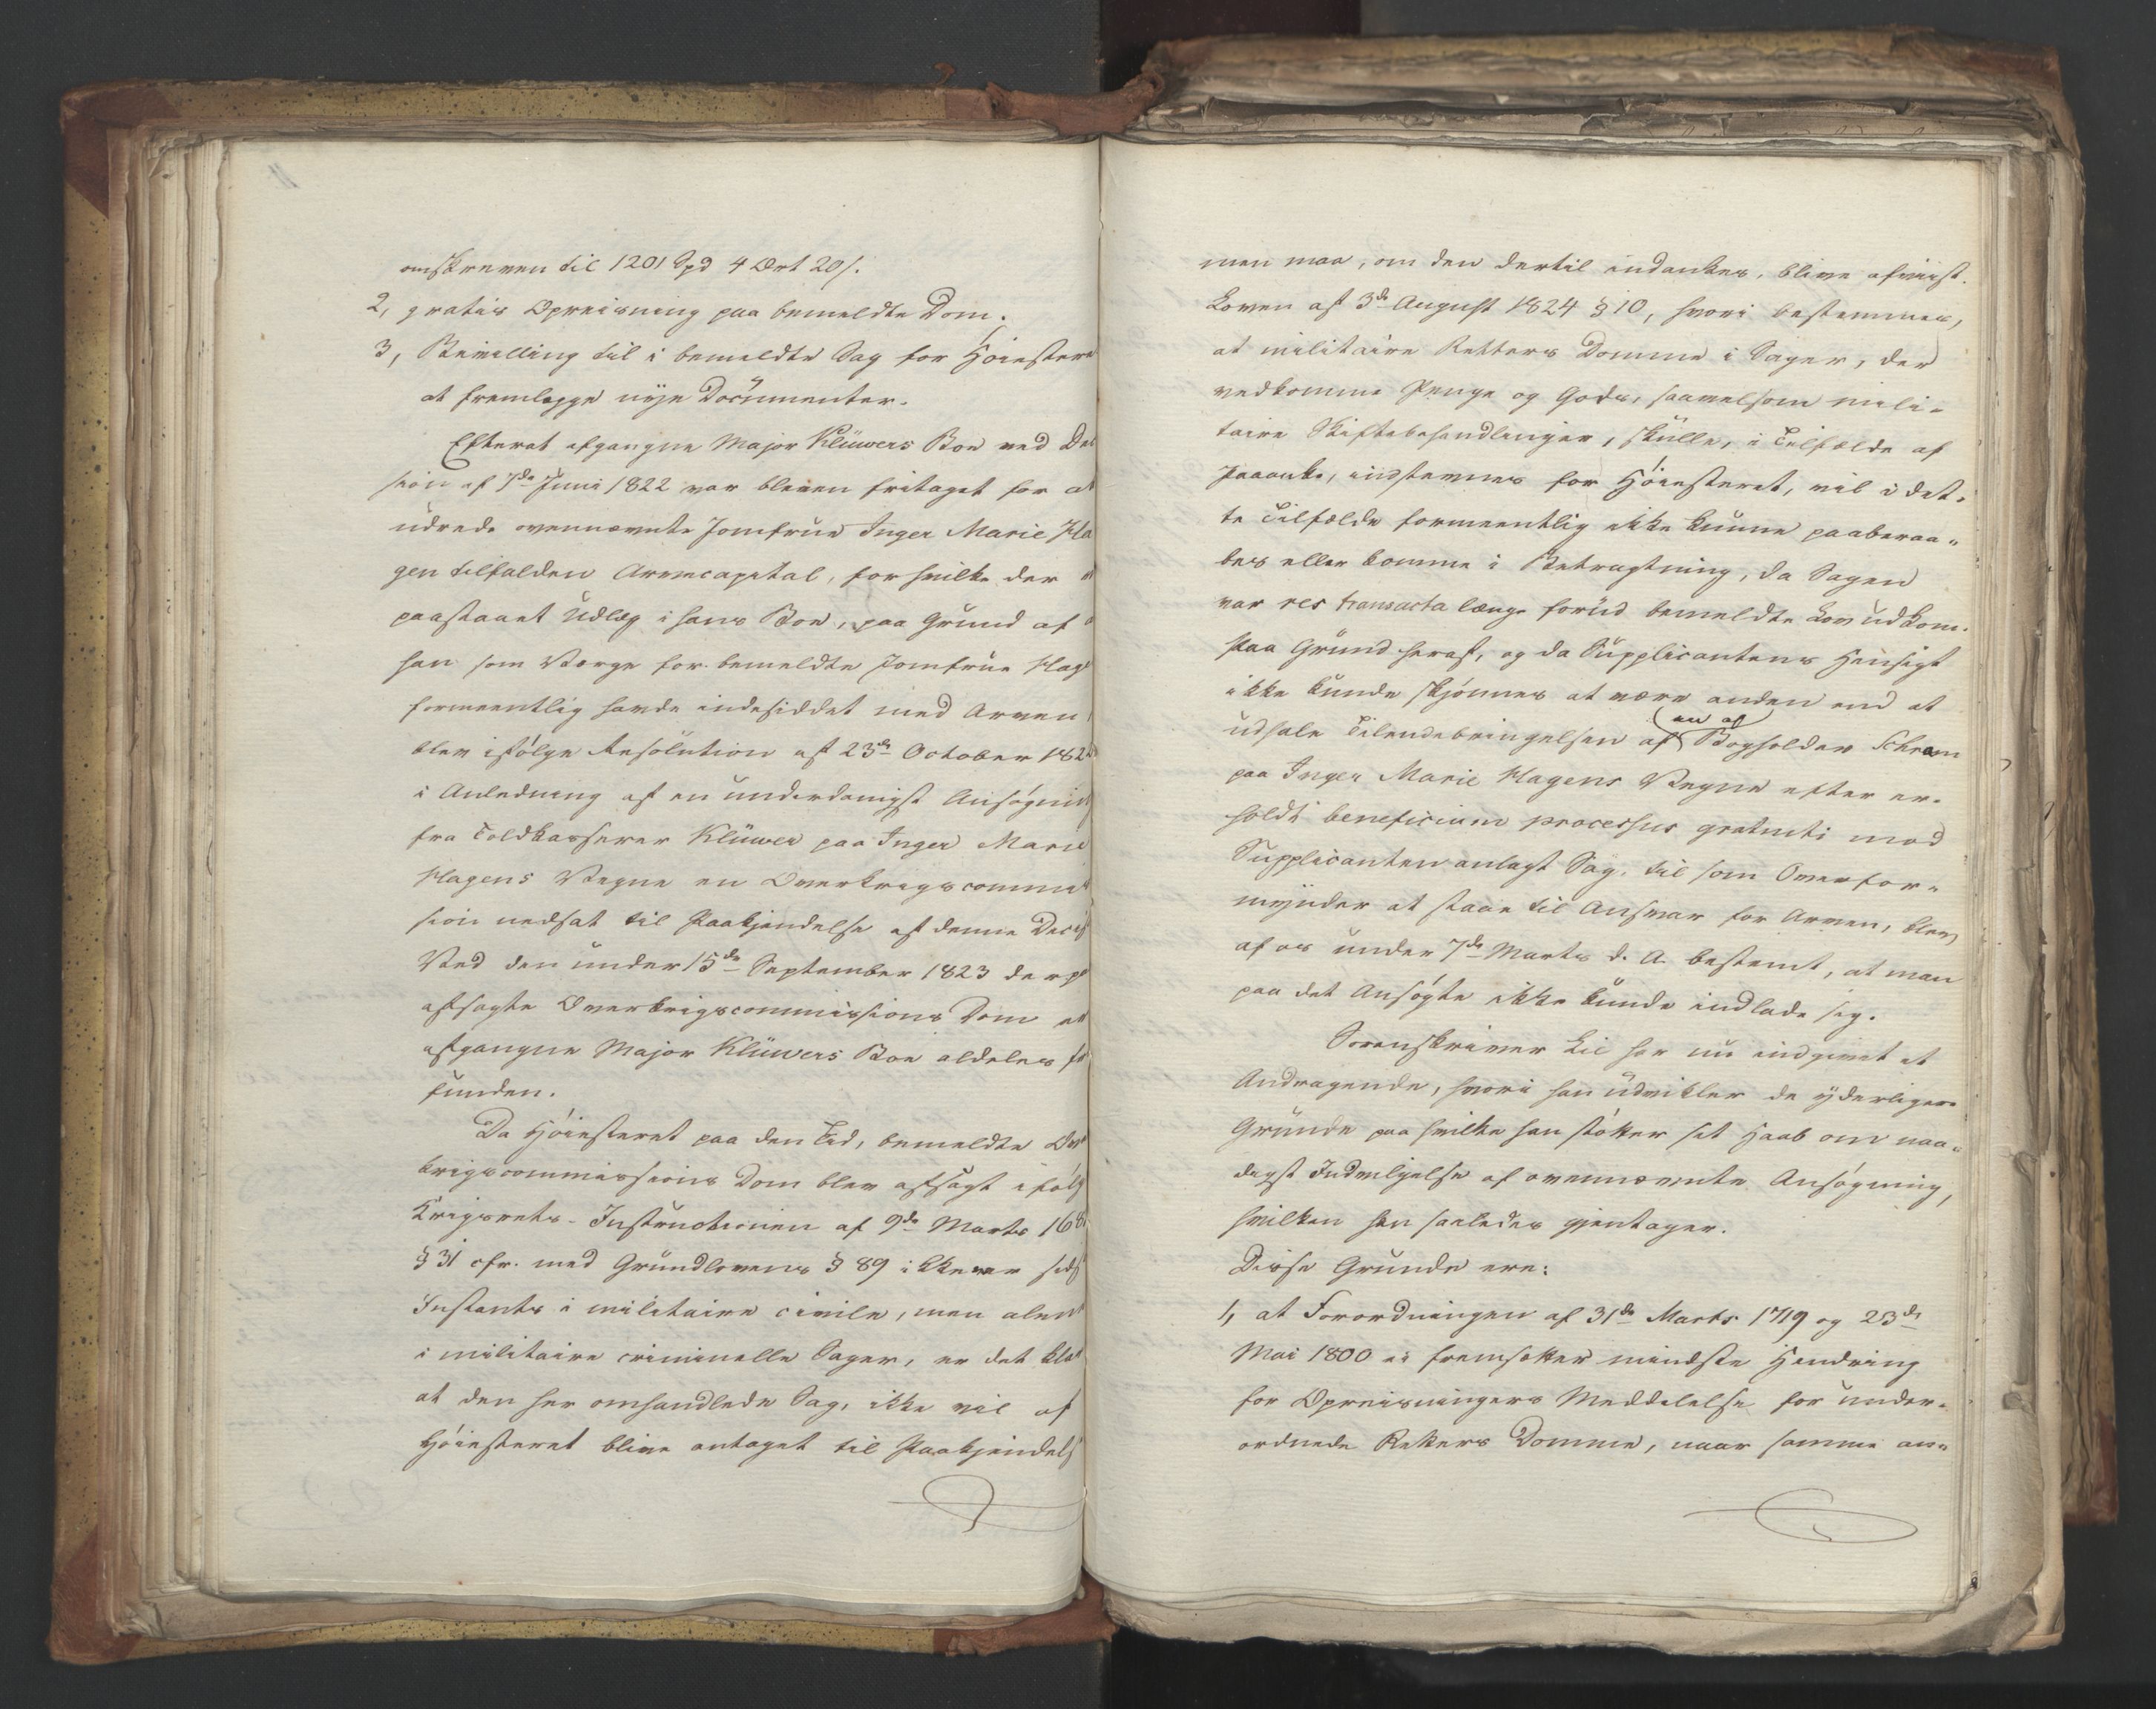 omskreven til 1201 Spd 4 Ort 20 s.
2, gratis Opreisning paa bemeldte Dom.
3, Bevilling til i bemeldte Sag for Høiestere
at fremlægge nye Documenter.
Efterat afgangne Major Klüwers Boe ved De
sion af 7de Juni 1822 var bleven fritaget for at
udrede ovennævnte Jomfrue Inger Marie Ha
gen tilfalden Arvecapital, for hvilke der
paastaaet Udlæg i hans Boe, paa Grund af
han som Værge for bemeldte Jomfrue Hag
formeentlig havde indesiddet med Arven
blev ifølge Resolution af 23de October 182
i Anledning af en underdanigst Ansøgning
fra Toldkasserer Klüwer paa Inger Marie
Hagens Vegne en Overkrigscommis
sion nedsat til Paakjendelse af denne Decis
Ved den under 15de September 1823 derp
afsagte Overkrigscommissions Dom
afgangne Major Klüwers Boe aldeles fri
funden.
Da Høiesteret paa den Tid, bemeldte Over
krigscommissions Dom blev afsagt ifølg
Krigsrets-Instructionen af 9de Marts 168
§ 31 cfr. med Grundlovens § 89 ikke var sids
Instants i militaire civile, men alene
i militaire criminelle Sager, er det klar
at den her omhandlede Sag, ikke vil af
Høiesteret blive antaget til Paakjendels
men maa, om den dertil indankes, blive afviist.
Loven af 3de August 1824 § 10, hvori bestemmes,
at militaire Retters Domme i Sager, der
vedkomme Penge og Gods, saavelsom mili-
taire Skiftebehandlinger, skulle, i Tilfælde af
Paaanke, indstevnes for Høiesteret, vil i det-
te Tilfælde formeentlig ikke kunne paaberaa-
bes eller komme i Betragtning, da Sagen
var res transacta længe førind bemeldte Lov udkom.
Paa Grund heraf, og da Supplicantens Hensigt
ikke kunde skjønnes at være anden end at
udhale Tilendebringelsen af en af Bogholder Schram
paa Inger Marie Hagens Vegne efter er-
holdt beneficium processus gratuiti mod
Supplicanten anlagt Sag, til som Overfor-
mynder at staae til Ansvar for Arven, blev
af os under 7de Marts d. A. bestemt, at man
paa det Ansøgte ikke kunde indlade sig.
Sorenskriver Lie har nu indgivet et
Andragende, hvori han udvikler de yderligere
Grunde paa hvilke han støtter sit Haab om naa-
digst Indvilgelse af ovennævnte Ansøgning,
hvilken han saaledes gjentager.
Disse Grunde ere:
1, at Forordningen af 31de Marts 1719 og 23de
Mai 1800 ei fremsætter mindste Hindring
for Opreisningers Meddelelse for under-
ordnede Retters Domme, naar samme an-